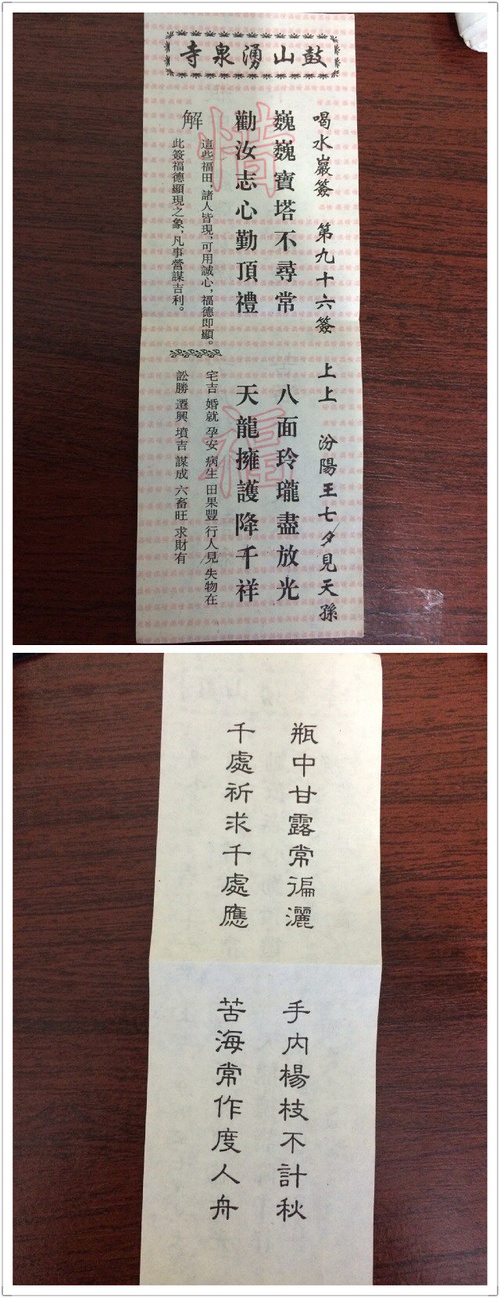 鼓山湧泉寺
喝水巖簽 第九十六簽 上上 汾陽王七夕見天孫
巍巍寶塔不尋常 八面玲瓏盡放光
勸汝志心勤頂禮 天龍擁護降千祥
解
這些福田，諸人皆現，可用誠心，福德即顯。
此簽福德顯現之象，凡事營謀吉利。
宅吉 婚就 孕安 病生 田果豐 行人見 失物在
訟勝 遷興 墳吉 謀成 六畜旺 求財有
惜福
瓶中甘露常徧灑 手內楊枝不計秋
千處祈求千處應 苦海常作度人舟